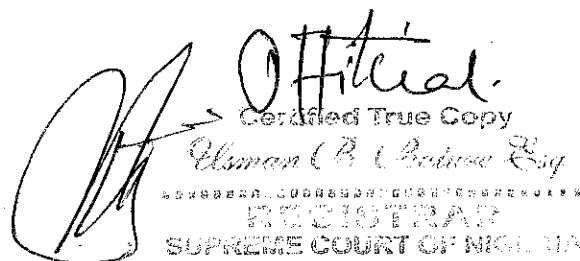 Official.
Certified True Copy
Usman B. Esq
REGISTRAR
SUPREME COURT OF NIGERIA